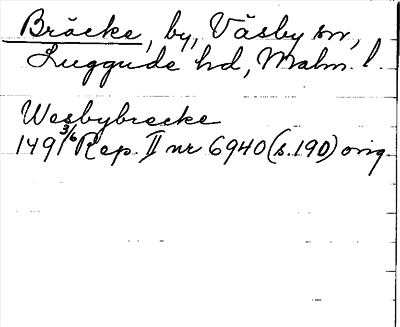 Bräcke, by, Väsby sn,
Luggude hd, Malm. l.
Wesbybrecke
1491 3/6 Rep. II nr 6940 (s. 190) orig.